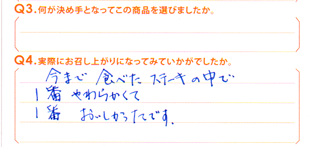 Q3.何が決め手となってこの商品を選びましたか。
Q4.実際にお召し上がりになってみていかがでしたか。
今まで 食べた ステーキの中で
1番 やわらかくて
1番 おいしかったです。